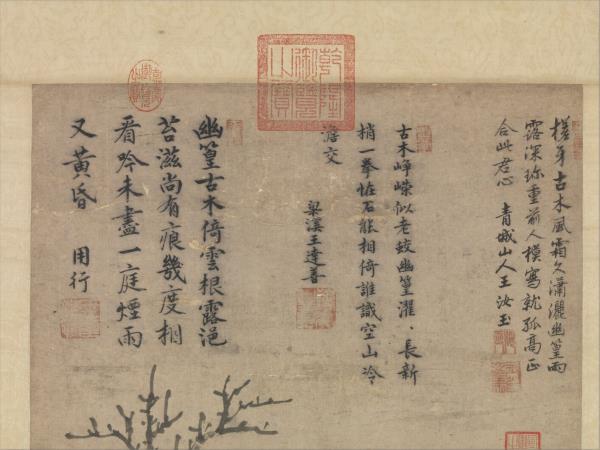 乾隆
御覽
之寶
槎牙古木風霜久瀟灑幽篁雨
露深珍重前人模寫就孤高正
合此君心 青城山人王汝玉
古木崢嶸似老蛟幽篁濯、長新
梢一拳怪石能相倚誰識空山冷
澹交
梁溪王達善
幽篁古木倚雲根露浥
苔滋尚有痕幾度相
看吟未盡一庭煙雨
又黃昏 用行